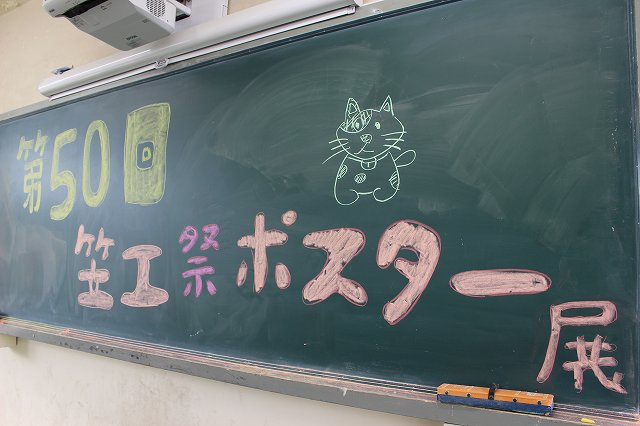 第50回
笠工祭ポスター展